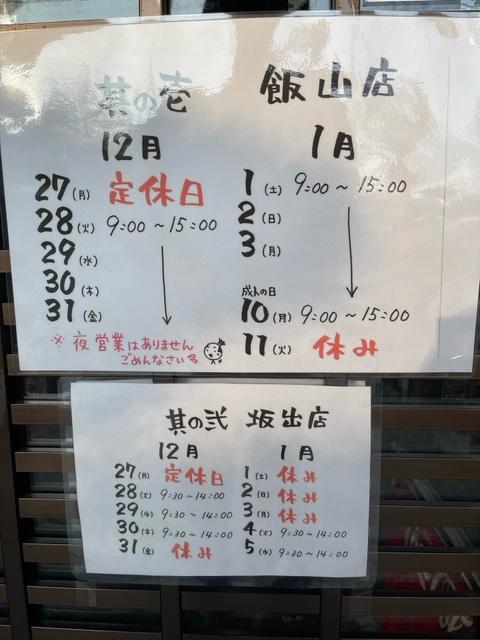 其の壱 飯山店
12月
27(月) 定休日
28(火) 9:00〜15:00
29(水)
30(木)
31(金)
※夜営業はありません
ごめんなさい
1月
1(土) 9:00〜15:00
2(日)
3(月)
成人の日
10(月) 9:00〜15:00
11(火) 休み
其の弐 坂出店
12月
27(月) 定休日
28(火) 9:30〜14:00
29(水) 9:30〜14:00
30(木) 9:30〜14:00
31(金) 休み
1月
1(土) 休み
2(日) 休み
3(月) 休み
4(火) 9:30〜14:00
5(水) 9:30〜14:00